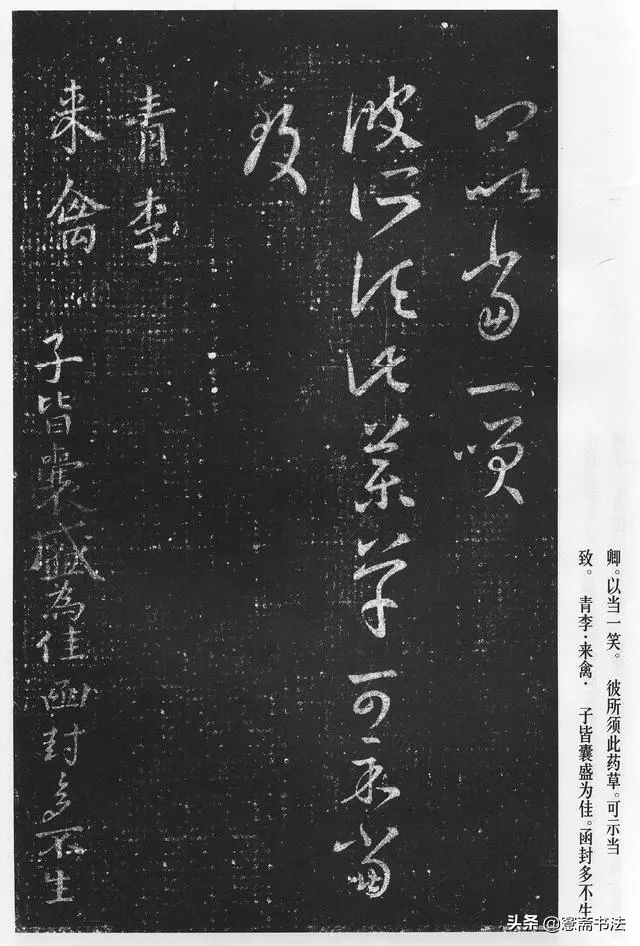 以當一笑
彼所須此藥草可示當
致
青李
来禽
子皆囊盛為佳函封多不生
卿。以当一笑。　彼所须此药草。可示当
致。　青李·来禽·　子皆囊盛为佳。函封多不生
头条@愙斋书法